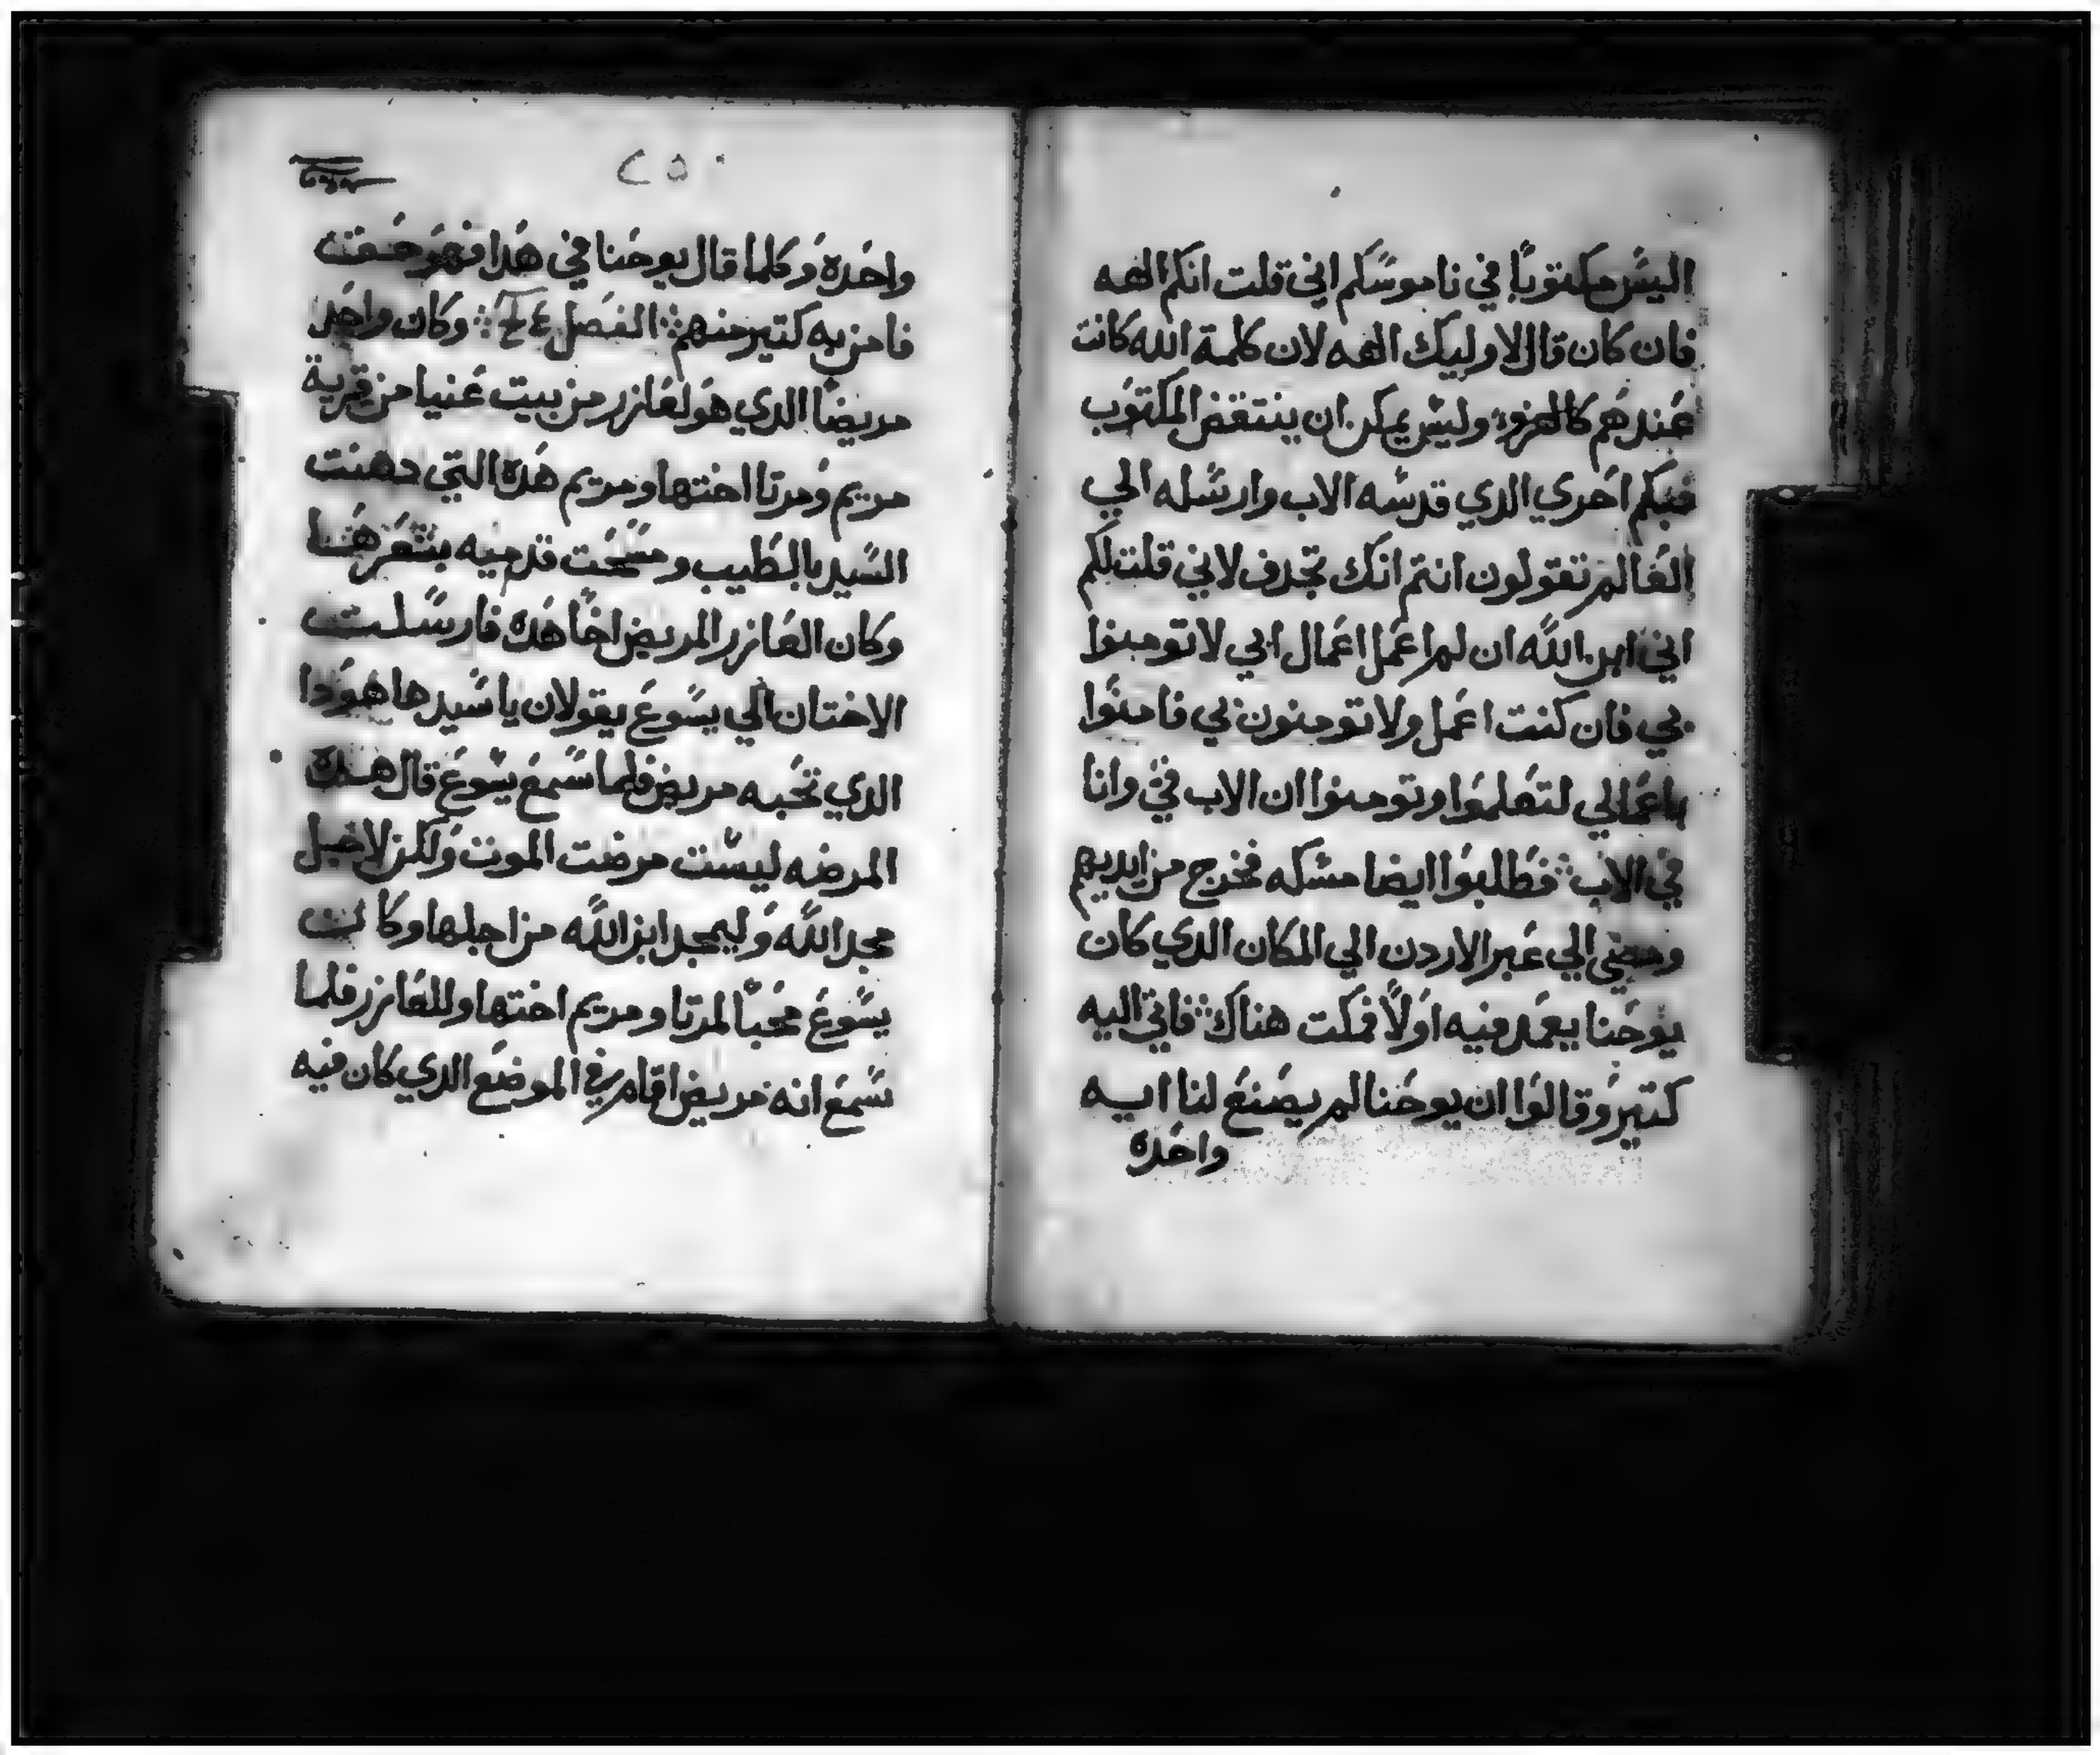 اليس مكتوبًا في ناموسكم اني قلت انكم الهه
فان كان قال لاوليك الهه لان كلمة الله كانت
عندهم وليس يمكن ان ينتقض المكتوب
فبكم احري الدي قدسه الاب وارسله الي
العالم تقولون انتم انك تجدف لاني قلت لكم
اني ابن الله ان لم اعمل اعمال ابي لا تومنوا
بي فان كنت اعمل ولا تومنون بي فامنوا
باعمالي لتعلموا وتومنوا ان الاب فيّ وانا
في الاب فطلبوا ايضا مسكه فخرج من ايديهم
ومضي الي عبر الاردن الي المكان الدي كان
يوحنا يعمد فيه اولاً فمكت هناك فاتي اليه
كتير وقالوا ان يوحنا لم يصنع لنا ايه
واحده
٢٥٠
واحده وكلما قال يوحنا في هدا فهو حق
فامن به كتير منهم الفصل وكان واحد
مريضًا الدي هو لعازر من بيت عنيا من قرية
مريم ومرتا اختها ومريم هده التي دهنت
السيد بالطيب ومسحت قدميه بشعرها
وكان العازر المريض اخًا هده فارسلت
الاختان الي يسوع يقولان يا سيد ها هودا
الدي تحبه مريض فلما سمع يسوع قال هده
المرضه ليست مرضت الموت ولكن لاجل
مجد الله وليمجد ابن الله من اجلها وكان
يسوع محبًا لمرتا ومريم اختها وللعازر فلما
سمع انه مريض اقام في الموضع الدي كان فيه